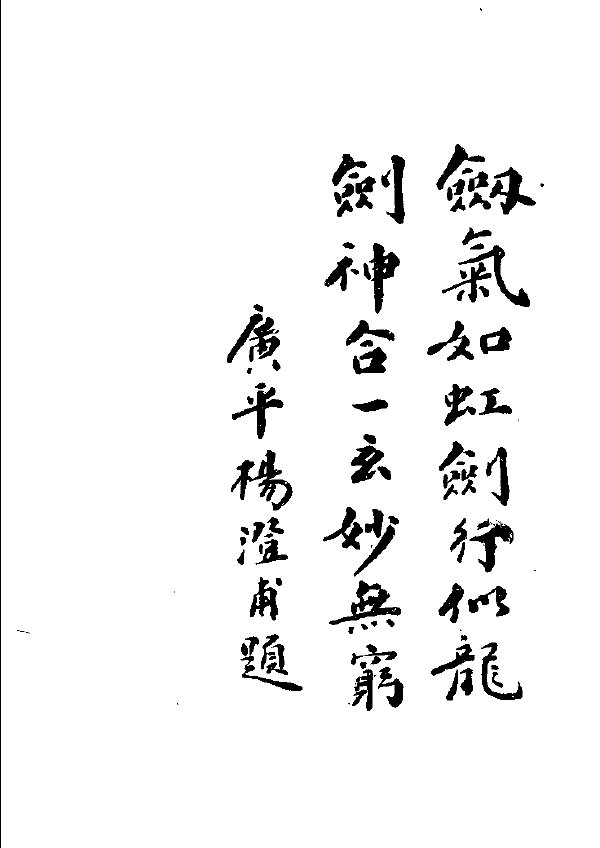 劔氣如虹劍行似龍
劍神合一玄妙無窮
廣平楊澄甫題